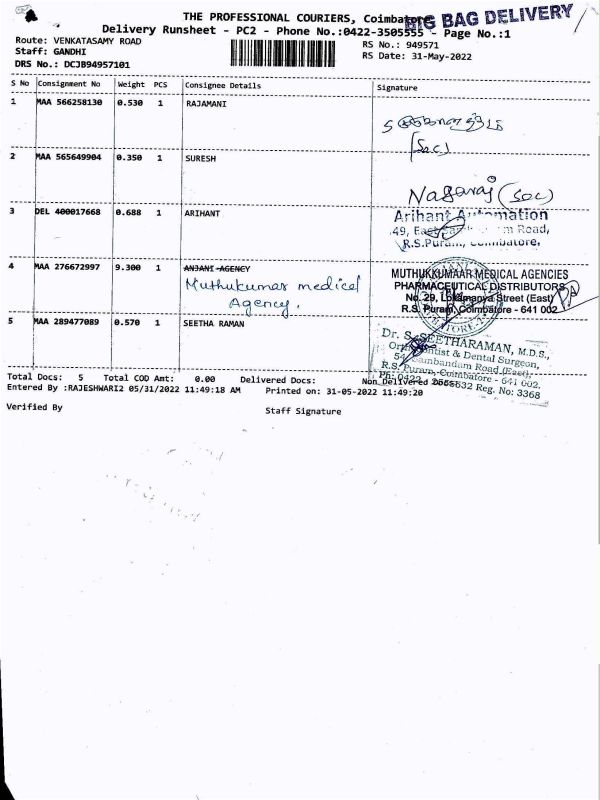 THE PROFESSIONAL COURIERS, Coimbatore
BIG BAG DELIVERY
Delivery Runsheet - PC2 - Phone No.:0422-3505555 - Page No.:1
Route: VENKATASAMY ROAD
RS No.: 949571
Staff: GANDHI
RS Date: 31-May-2022
DRS No.: DCJB94957101
S No Consignment No Weight PCS Consignee Details Signature
1 MAA 566258130 0.530 1 RAJAMANI
(Sec)
2 MAA 565649904 0.350 1 SURESH
Nagaraj (Sec)
3 DEL 400017668 0.688 1 ARIHANT
Arihant Automation
49, East Road,
R.S.Puram, Coimbatore.
4 MAA 276672997 9.300 1 ANJANI AGENCY
Muthukumar medical
Agency.
MUTHUKKUMAAR MEDICAL AGENCIES
PHARMACEUTICAL DISTRIBUTORS
No. 29, Lokamanya Street (East)
R.S. Puram, Coimbatore - 641 002
5 MAA 289477089 0.570 1 SEETHA RAMAN
Dr. S. SEETHARAMAN, M.D.S.,
& Dental Surgeon,
Road (East),
R.S. Puram, Coimbatore - 641 002.
Reg. No: 3368
Total Docs: 5 Total COD Amt: 0.00 Delivered Docs: Non Delivered
Entered By :RAJESHWARI2 05/31/2022 11:49:18 AM Printed on: 31-05-2022 11:49:20
Verified By
Staff Signature